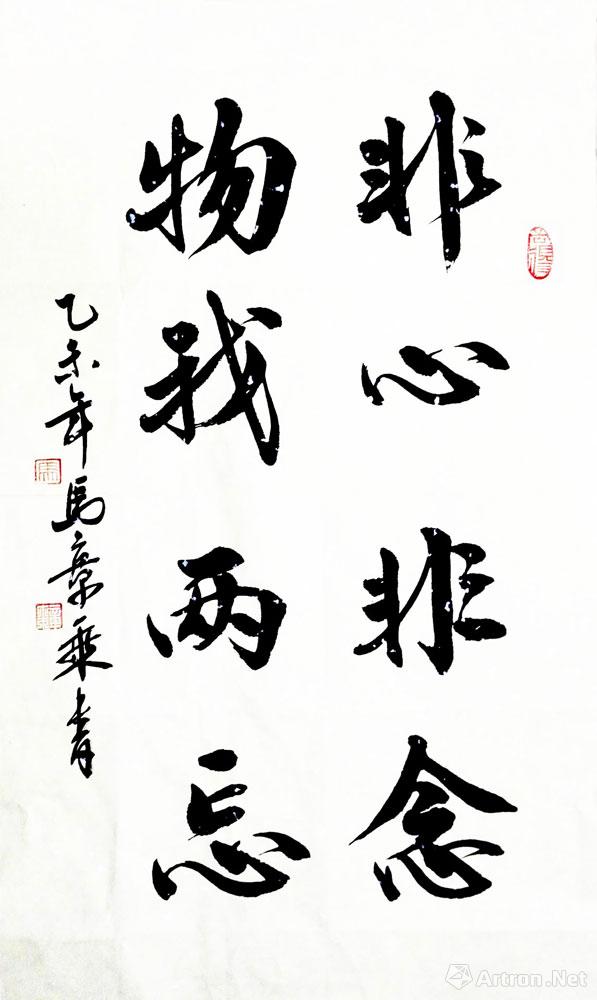 非心非念
物我两忘
乙未年馬章乘書
Artron.Net